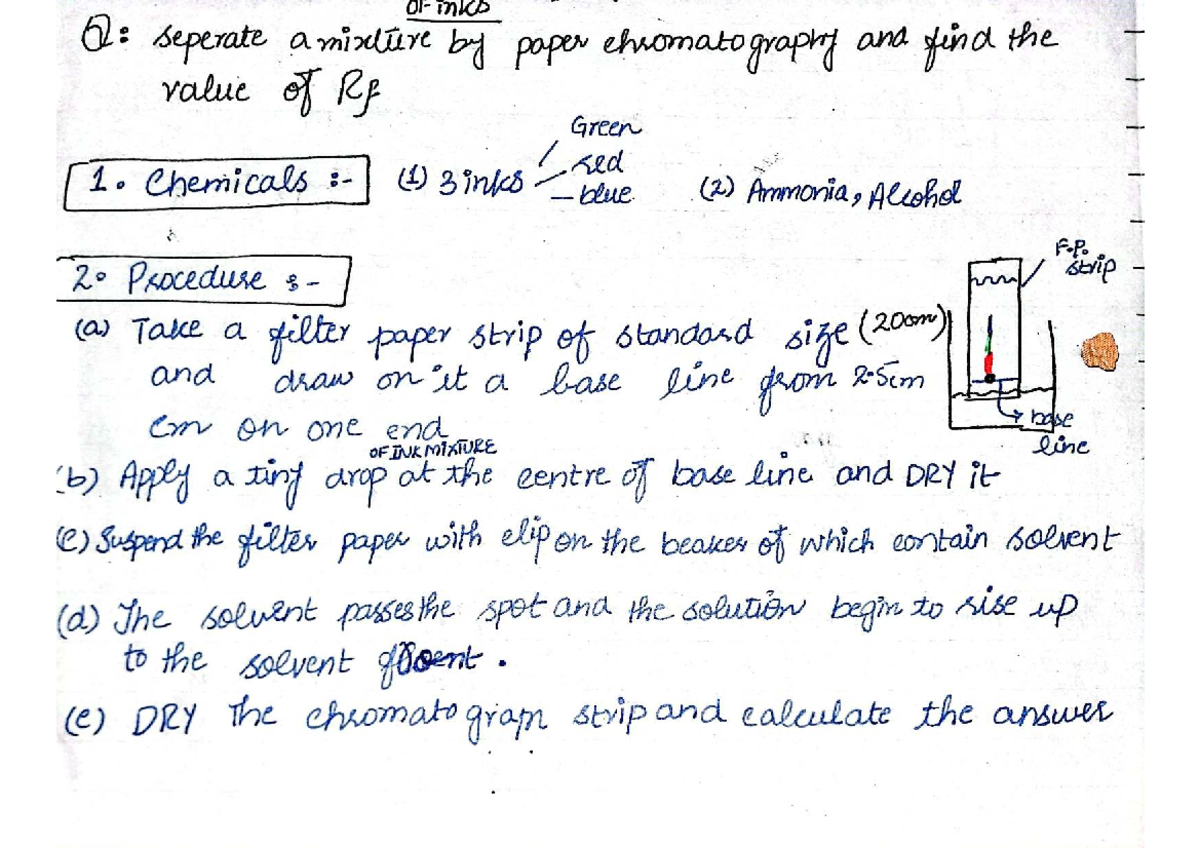 of inks
Q: seperate a mixture by paper chromatography and find the
value of Rf
Green
1. Chemicals :- (1) 3 inks red (2) Ammonia, Alcohol
blue
F.P.
strip
2. Procedure :-
(a) Take a filter paper strip of standard size (20cm)
and draw on it a base line from 2.5cm
cm on one end
base
line
OF INK MIXTURE
(b) Apply a tiny drop at the centre of base line and DRY it
(c) Suspend the filter paper with clip on the beaker of which contain solvent
(d) The solvent passes the spot and the solution begin to rise up
to the solvent froent.
(e) DRY The chromatogram strip and calculate the answer